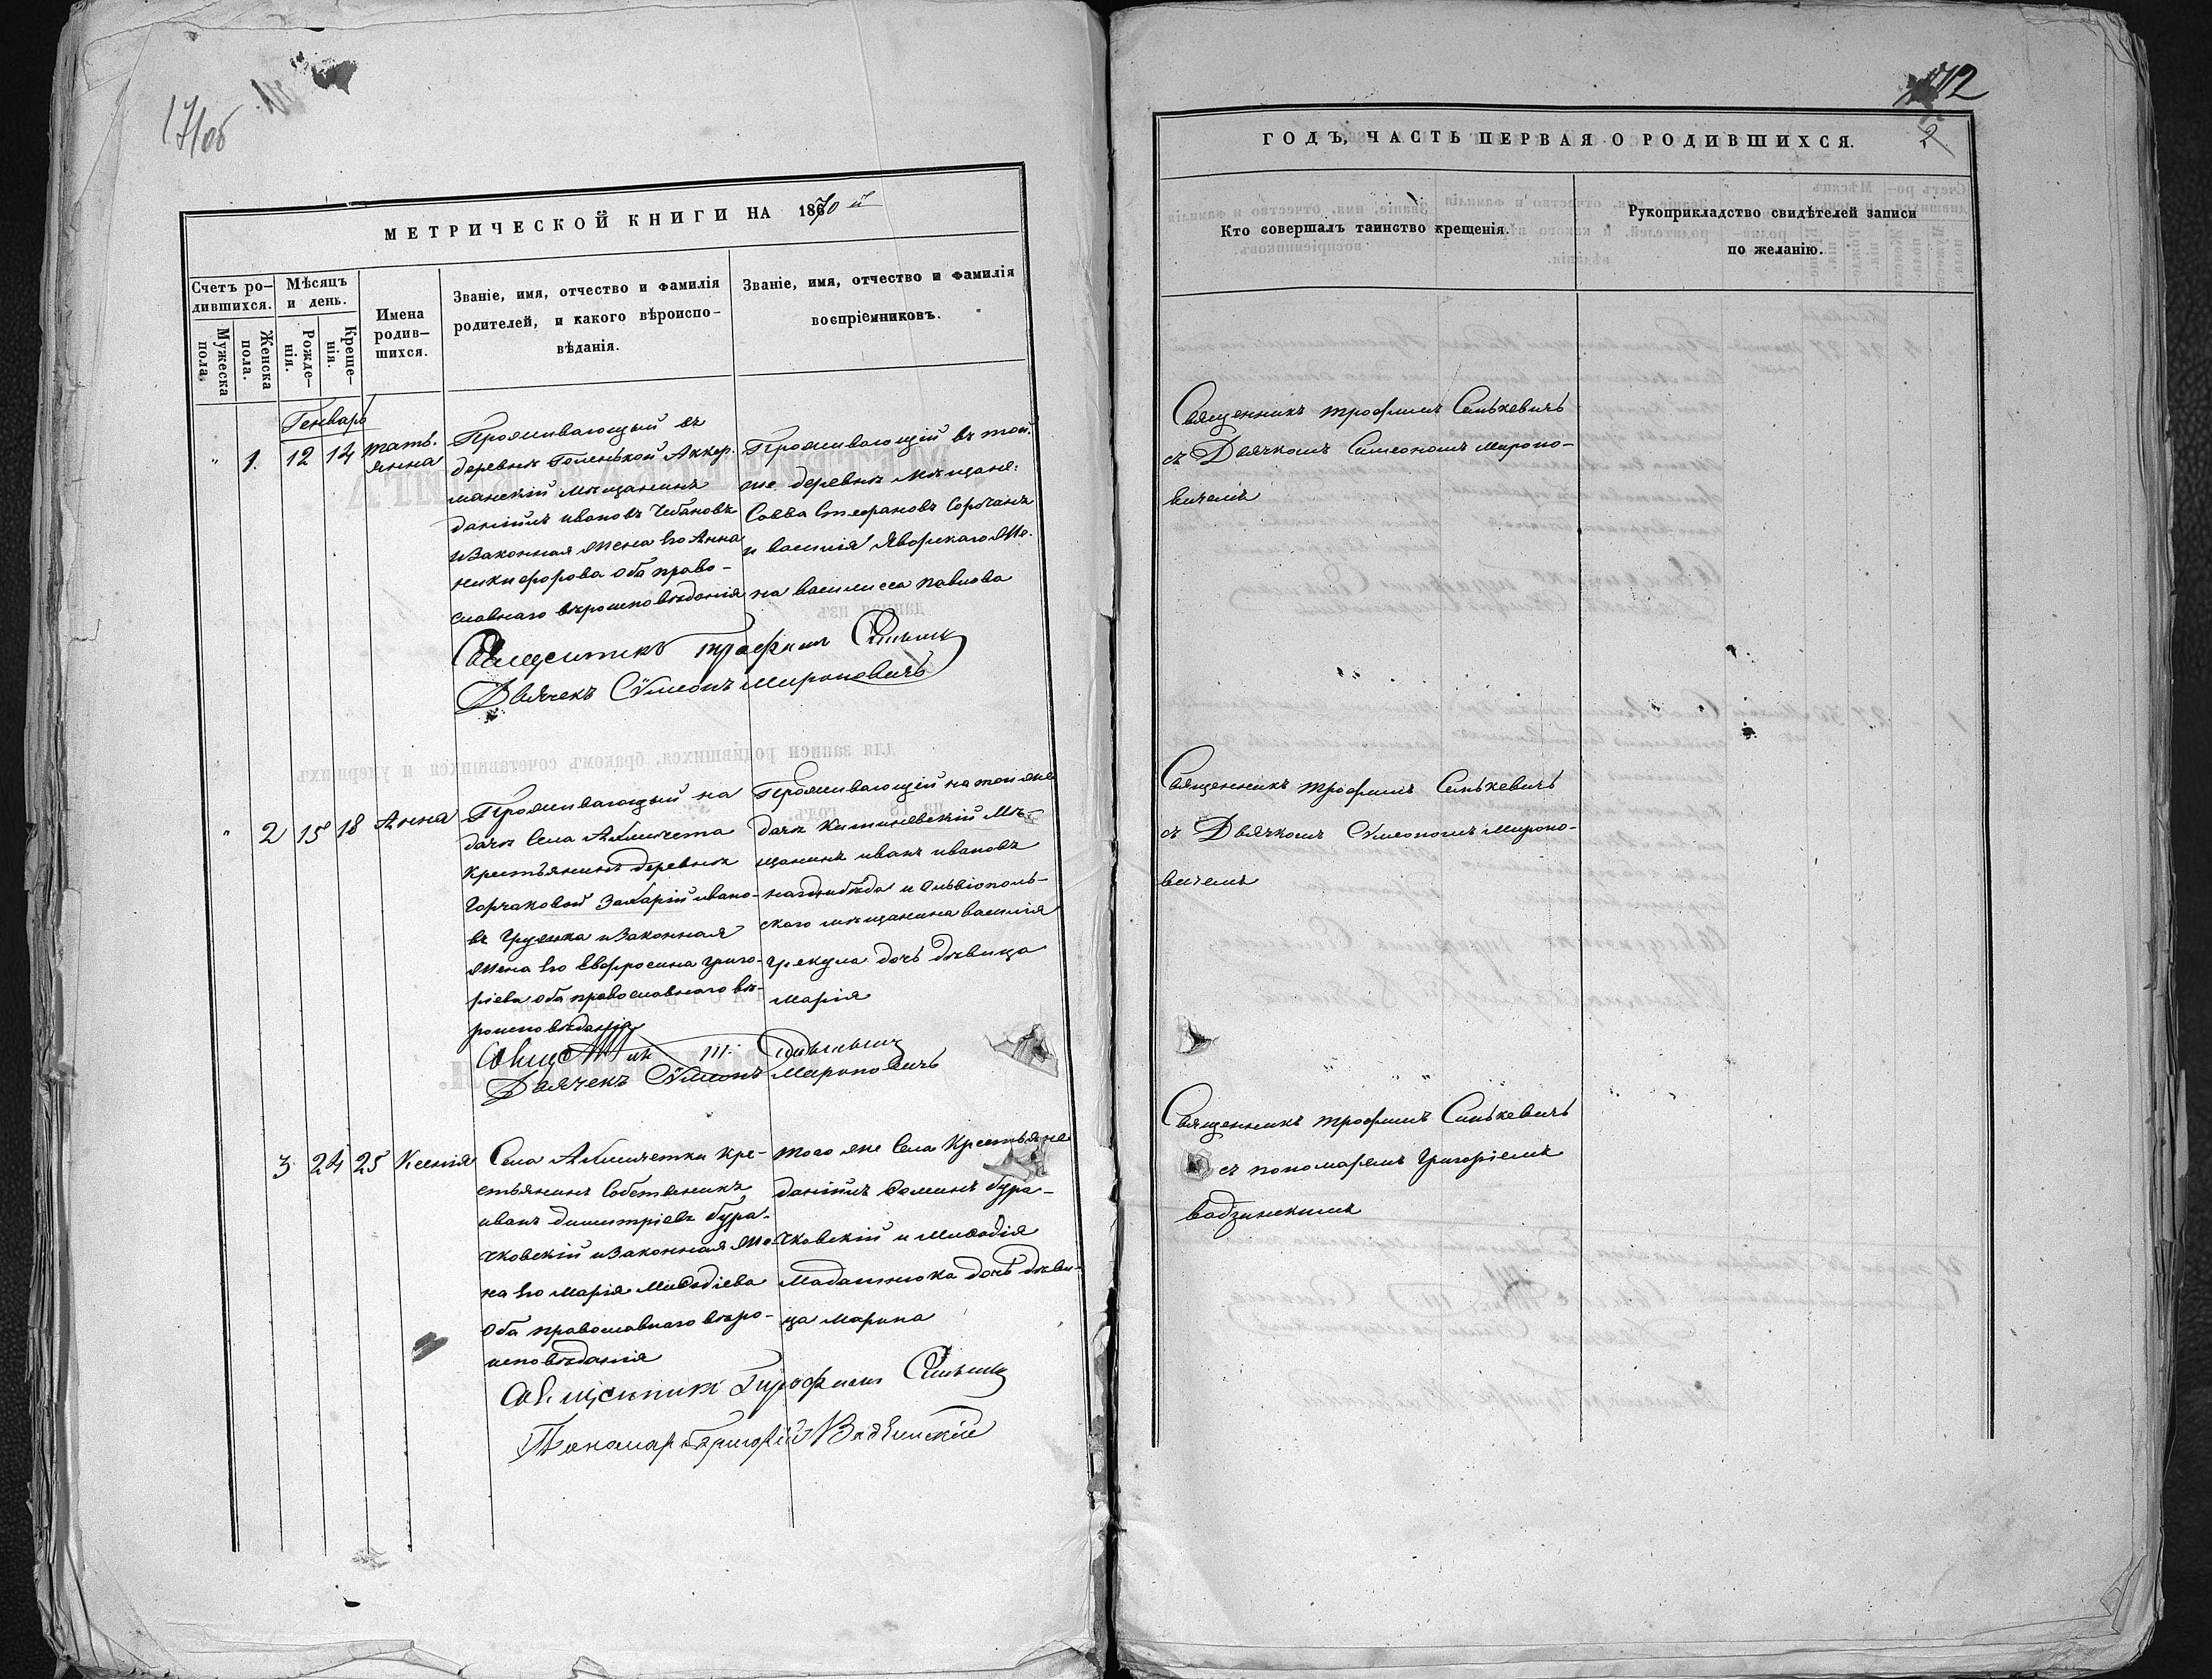 171об
МЕТРИЧЕСКОЙ КНИГИ НА 1870 й
Счетъ ро-
дившихся.
Мѣсяцъ
и день.
Мужеска
пола.
Женска
пола.
Рожде-
нія.
Креще-
нія.
Имена
родив-
шихся.
Званіе, имя, отчество и фамилія
родителей, и какого вѣроиспо-
вѣданія.
Званіе, имя, отчество и фамилія
воспріемниковъ.
Генварь
" 1. 12 14 Тать-
янна
Проживающый въ
деревнѣ Аккер-
манскій мѣщанинъ
Даніилъ Ивановъ Чебановъ
и законная жена Его Анна
Никифорова оба право-
славнаго вѣроисповѣданія
Проживающій въ той-
же деревнѣ мѣщане:
Савва Стефановъ Сорочанъ
и Василія Яворскаго же-
на Василисса Павлова
Священникъ Трофимъ
Дьячекъ Сѵмеонъ Мироновичъ
" 2 15 18 Анна
Проживающый на
дачѣ села
Крестьянинъ деревни
Горчаковой Захарій Ивано-
въ и законная
жена Его Евфросина Григо-
ріева оба православнаго вѣ-
роисповѣданія
Проживающій на той же
дачѣ Кишиневскій Мѣ-
щанинъ Иванъ Ивановъ
и Ольвіополь-
скаго мѣщанина Василія
Грекула дочь дѣвица
Марія
Дьячекъ Сѵмеонъ Мироновичъ
3 24 25 Ксенія
Села Кре-
стьянинъ Собственникъ
Иванъ Димитріевъ Бура-
чковскій и законная же-
на Его Марія Меѳодіева
Оба православнаго вѣро-
исповѣданія
Того же Села Крестьяне
Даніилъ Бура-
чковскій и Меѳодія
дочь дѣви-
ца Марина
Священникъ Трофимъ
Пономарь Григорій Вадзинскій
172
2
ГОДЪ, ЧАСТЬ ПЕРВАЯ О РОДИВШИХСЯ.
Кто совершалъ таинство крещенія.
Рукоприкладство свидѣтелей записи
по желанію.
Священникъ Трофимъ Синькевичъ
съ Дьячкомъ Симеономъ Мироно-
вичемъ
Священникъ Трофимъ Синькевичъ
съ Дьячкомъ Сѵмеономъ Мироно-
вичемъ
Священникъ Трофимъ Синькевичъ
съ пономаремъ Григоріемъ
Вадзинскимъ